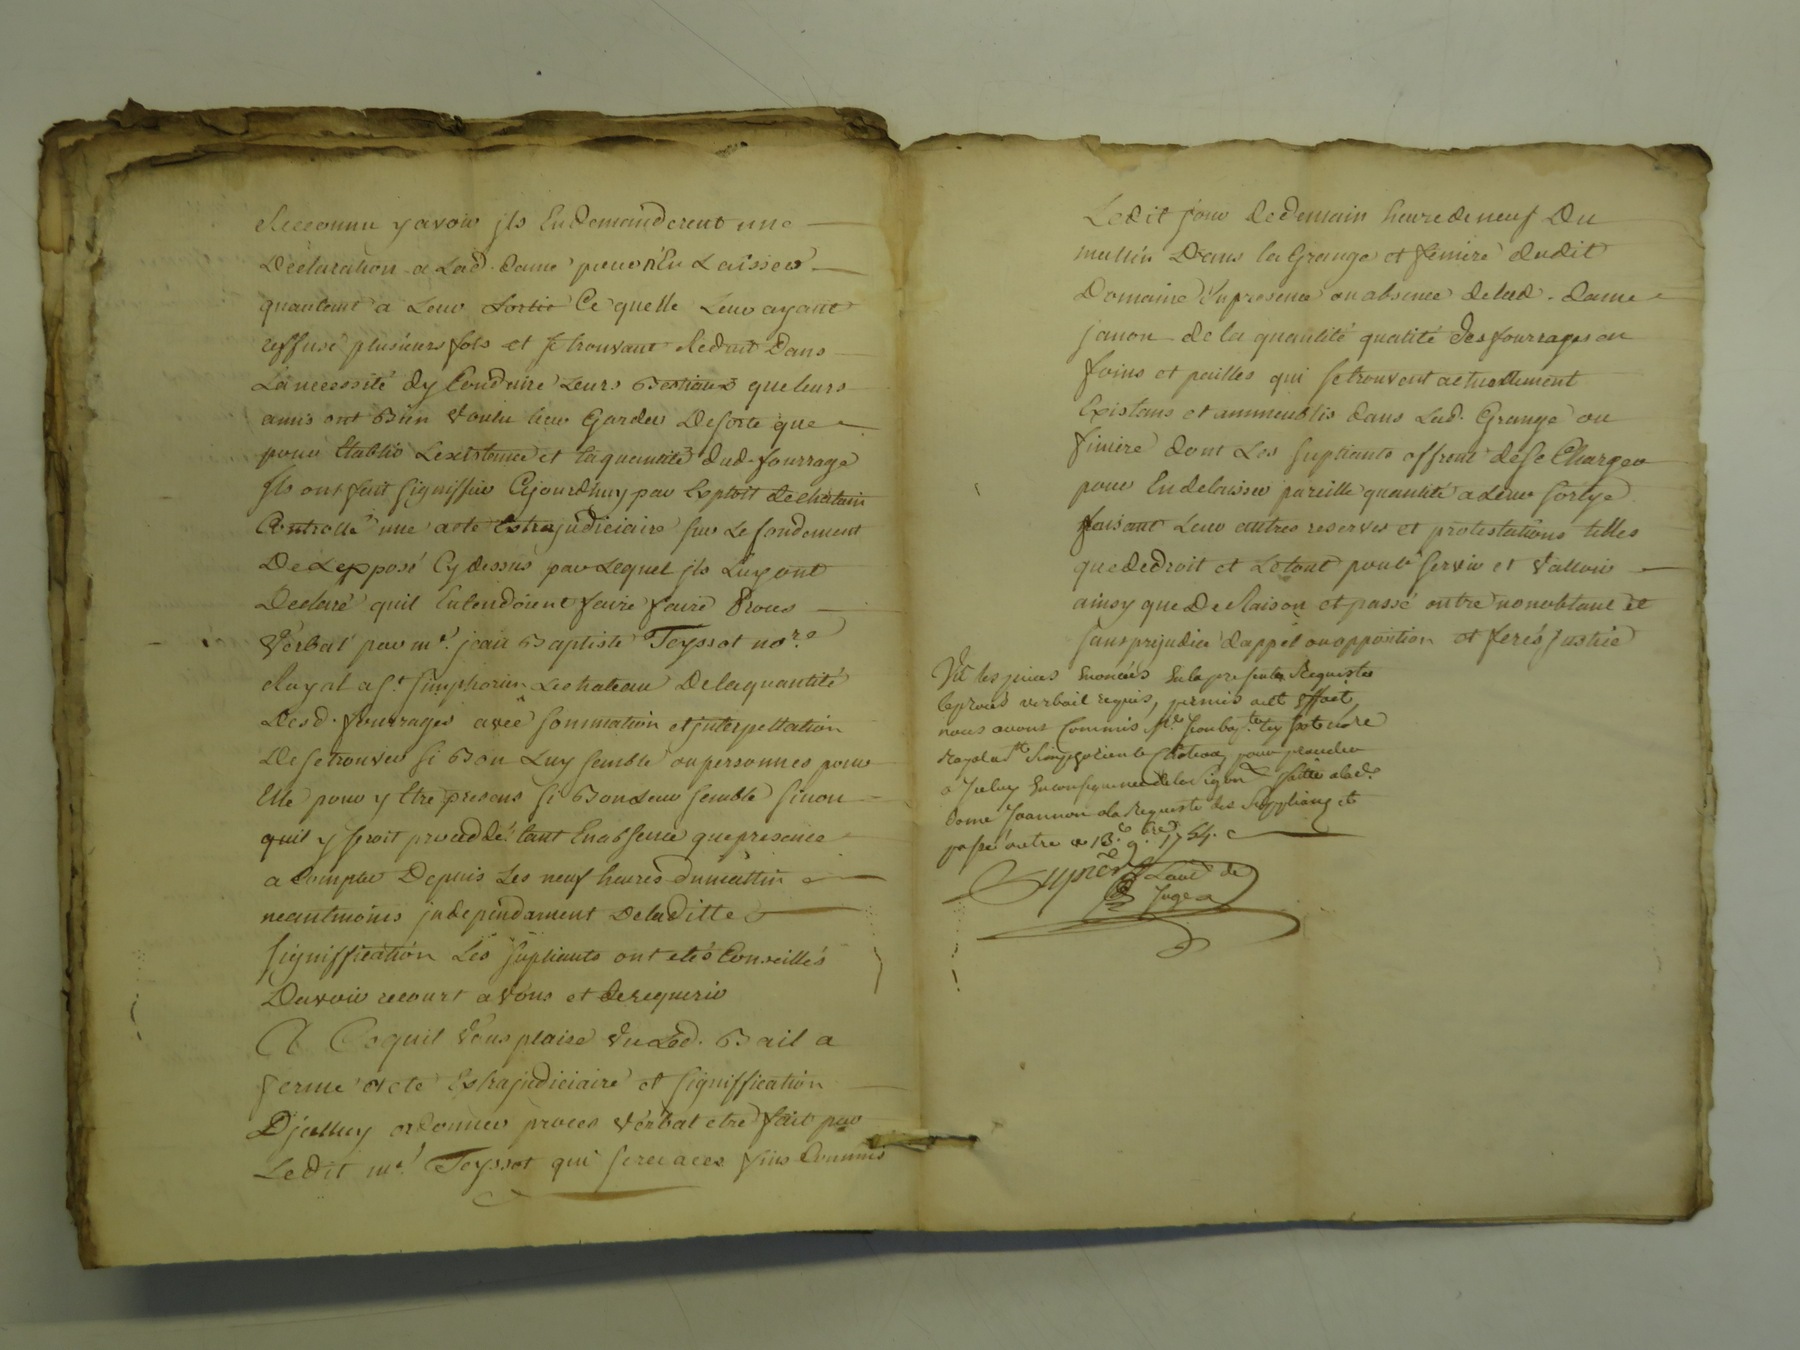 Reconnu y avoir jls En demanderent une
Déclaration a Lad. dame pour n'En Laisser
quautant a Leur Sortie Ce quelle Leur ayant
reffusé plusieurs fois et se trouvant Reduit Dans
La necessité dy Conduire Leurs Bestiaux que leurs
amis ont Bien voulu leur Garder De sorte que
pour Etablir Lexistance et la quantité dud. fourrage
Jls ont fait signiffier Cejourdhuy par Exploit de chatain
Controllé une acte Extrajudiciaire sur Le fondement
De Lexposé Cy dessus par Lequel jls Luy ont
Declaré quil Entendoient faire faire Proces
Verbal par me. jean Baptiste Teyssot nore
Royal a St. Simphorien Le chateau De la quantité
Desd. fourrages avec sommation et jnterpellation
De se trouver si Bon Luy semble ou personnes pour
Elle pour y Etre presens si Bon Leur semble sinon
quil y seroit proceddé tant En absence que presence
a Compter Depuis Les neuf heures du mattin
neantmoins jndependament De laditte
signiffication Les supliants ont etés Conseillés
Davoir recourt a Vous et de requerir
A Ce quil Vous plaise Vu Led. Bail a
ferme acte Extrajudiciaire et signiffication
Djcelluy ordonner proces Verbal etre fait par
Ledit me. Teyssot qui sera a ces fins Commis
Ledit jour de demain heure de neuf Du
mattin Dans la Grange et feniere dudit
Domaine En presence ou absence de lad. dame
janon de la quantité qualité des fourrages ou
foins et pailles qui se trouvent actuellement
Existans et ammeublis dans Lad. Grange ou
finiere dont Les supliants offrent de se Charger
pour En delaisser pareille quantité a leur sortye
faisant Leur autres reserves et protestations telles
que de droit et Le tout pour servir et valloir
ainsy que De Raison et passé outre nonobtant et
sans prejudice dappel ou opposition et ferés justice
Vu les pieces Enoncées En la presente Requeste
le proces verbail requis, permis a cet Effaet,
nous avons Commis Me. Jean bapte. teyssot nore
Royal a St Simphorien le Chateau pour proceder
a Jceluy En consequence de la signon faitte a lad.
dame Joannon a la Requeste des Suppliants et
passé outre ce 13e. 9bre. 1754.
Juge